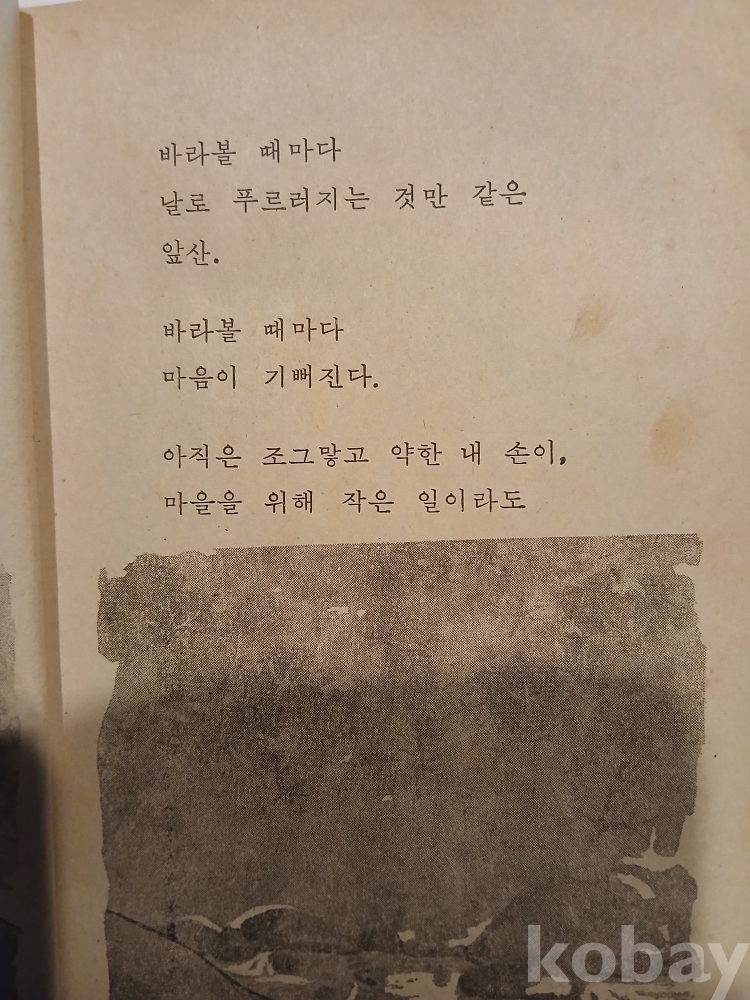 바라볼 때마다
날로 푸르러지는 것만 같은
앞산.
바라볼 때마다
마음이 기뻐진다.
아직은 조그맣고 약한 내 손이,
마을을 위해 작은 일이라도
kobay